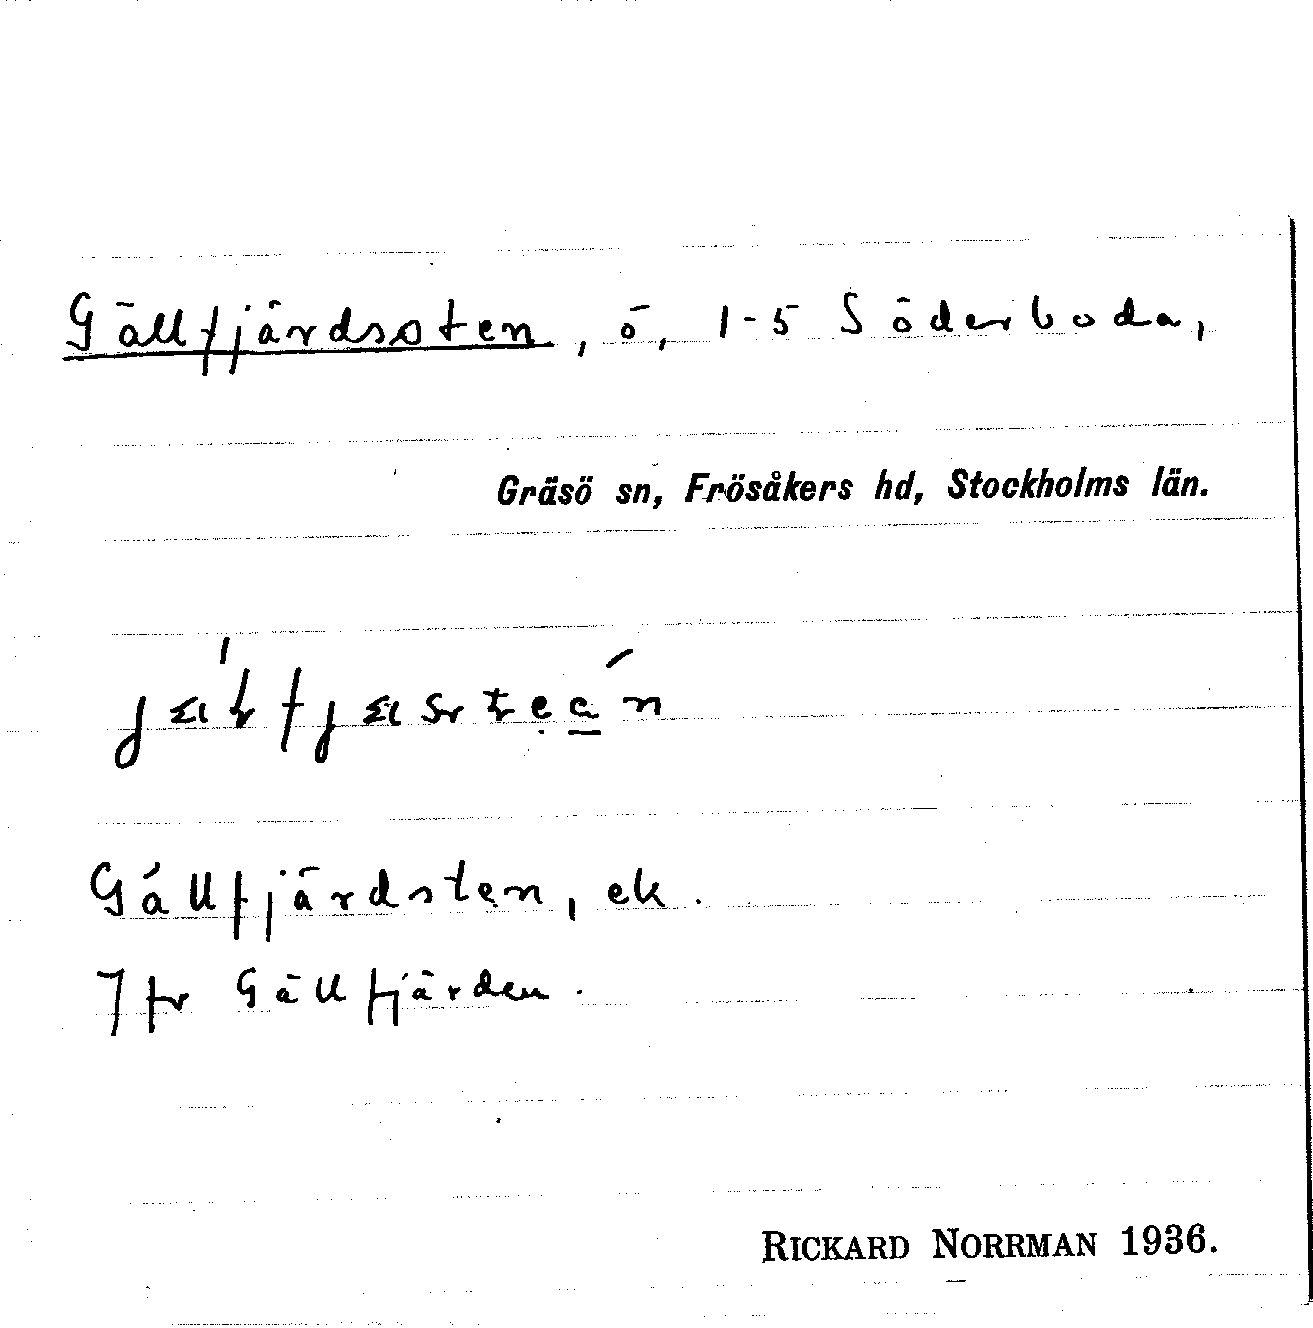 Gällfjärdssten, ö, 1-5 Söderboda,
Gräsö sn, Frösåkers hd, Stockholms län.
Gällfjärdsten, ek.
Jfr Gällfjärden.
RICKARD NORRMAN 1936.